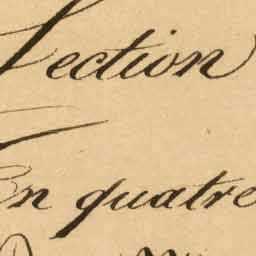 Section
En quatre